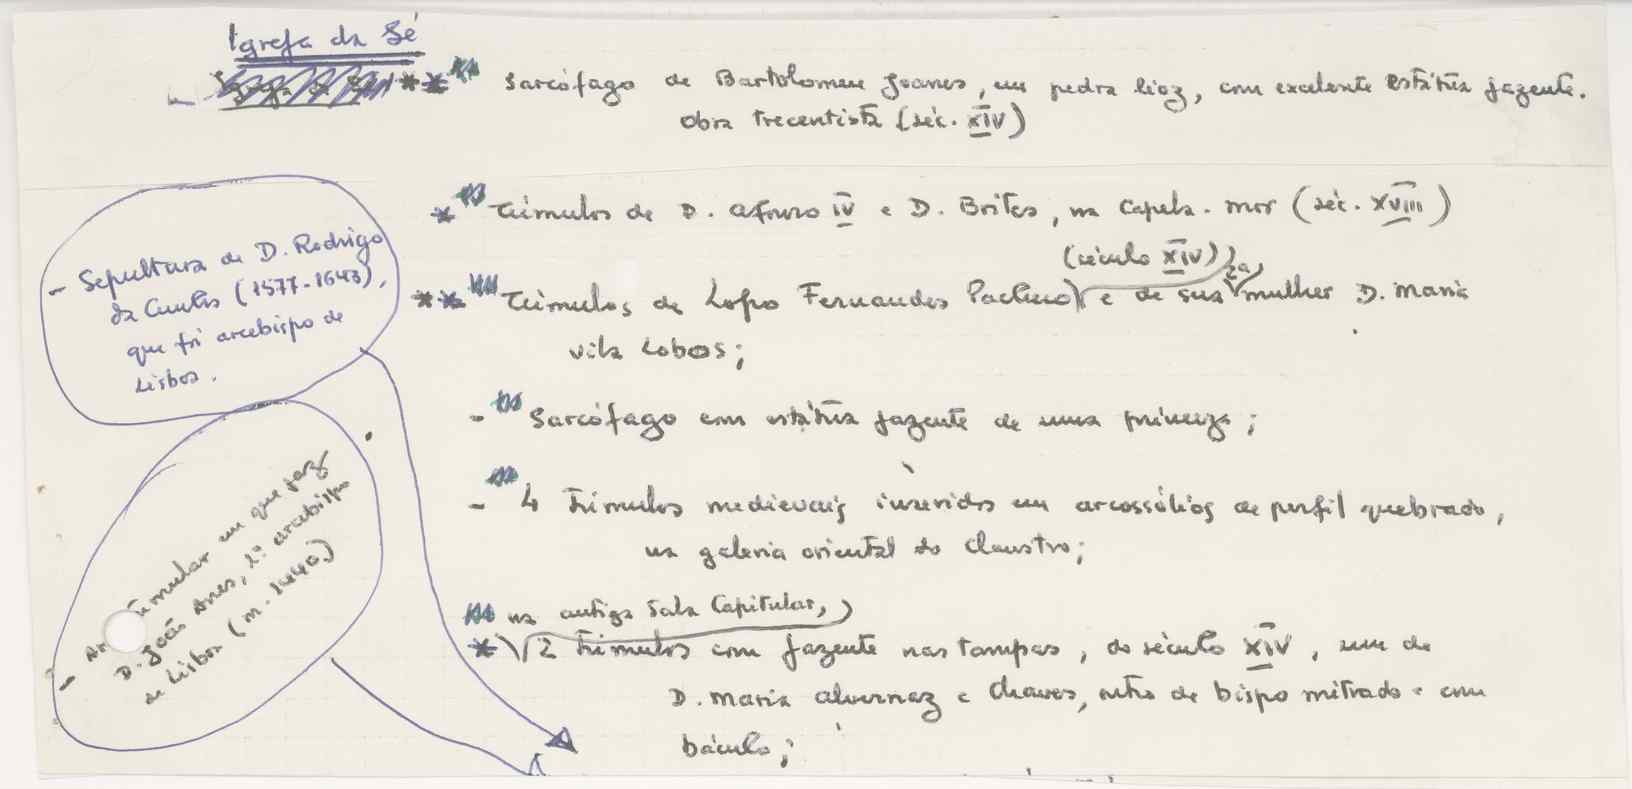 Igreja da Sé
** Sarcófago de Bartolomeu Joanes, em pedra lioz, com excelente estátua jazente.
Obra trecentista (séc. XIV)
* Túmulos de D. Afonso IV e D. Brites, na capela-mor (séc. XVIII)
(século XIV)
2ª
** Túmulos de Lopo Fernandes Pacheco e de sua mulher D. Maria
Vila Lobos;
- Sarcófago com estátua jazente de uma princeza;
- 4 Túmulos medievais inseridos em arcossólios de perfil quebrado,
na galeria oriental do claustro;
na antiga Sala Capitular,
* 2 Túmulos com jazente nas tampas, do século XIV, um de
D. Maria Alvernaz e Chaves, outro de bispo mitrado e com
báculo;
- Sepultura de D. Rodrigo
da Cunha (1577-1643),
que foi arcebispo de
Lisboa.
- tumular em que jaz
D. João Anes, 1º arcebispo
de Lisboa (m. 1440)